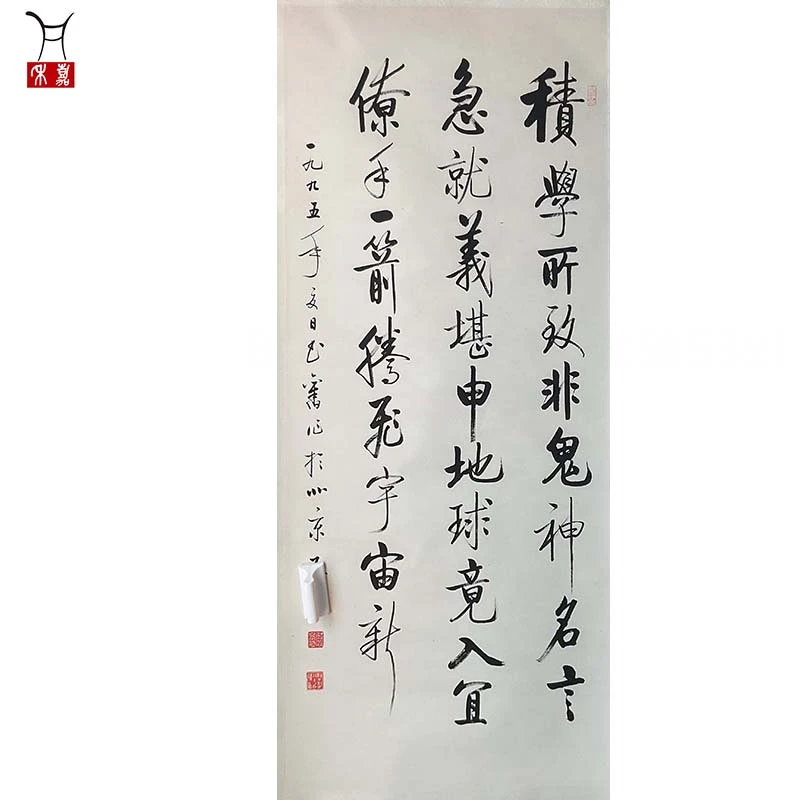 嘉禾
積學所致非鬼神名言
急就義堪申地球竟入宜
僚手一箭騰飛宇宙新
一九九五年夏日書舊作於北京